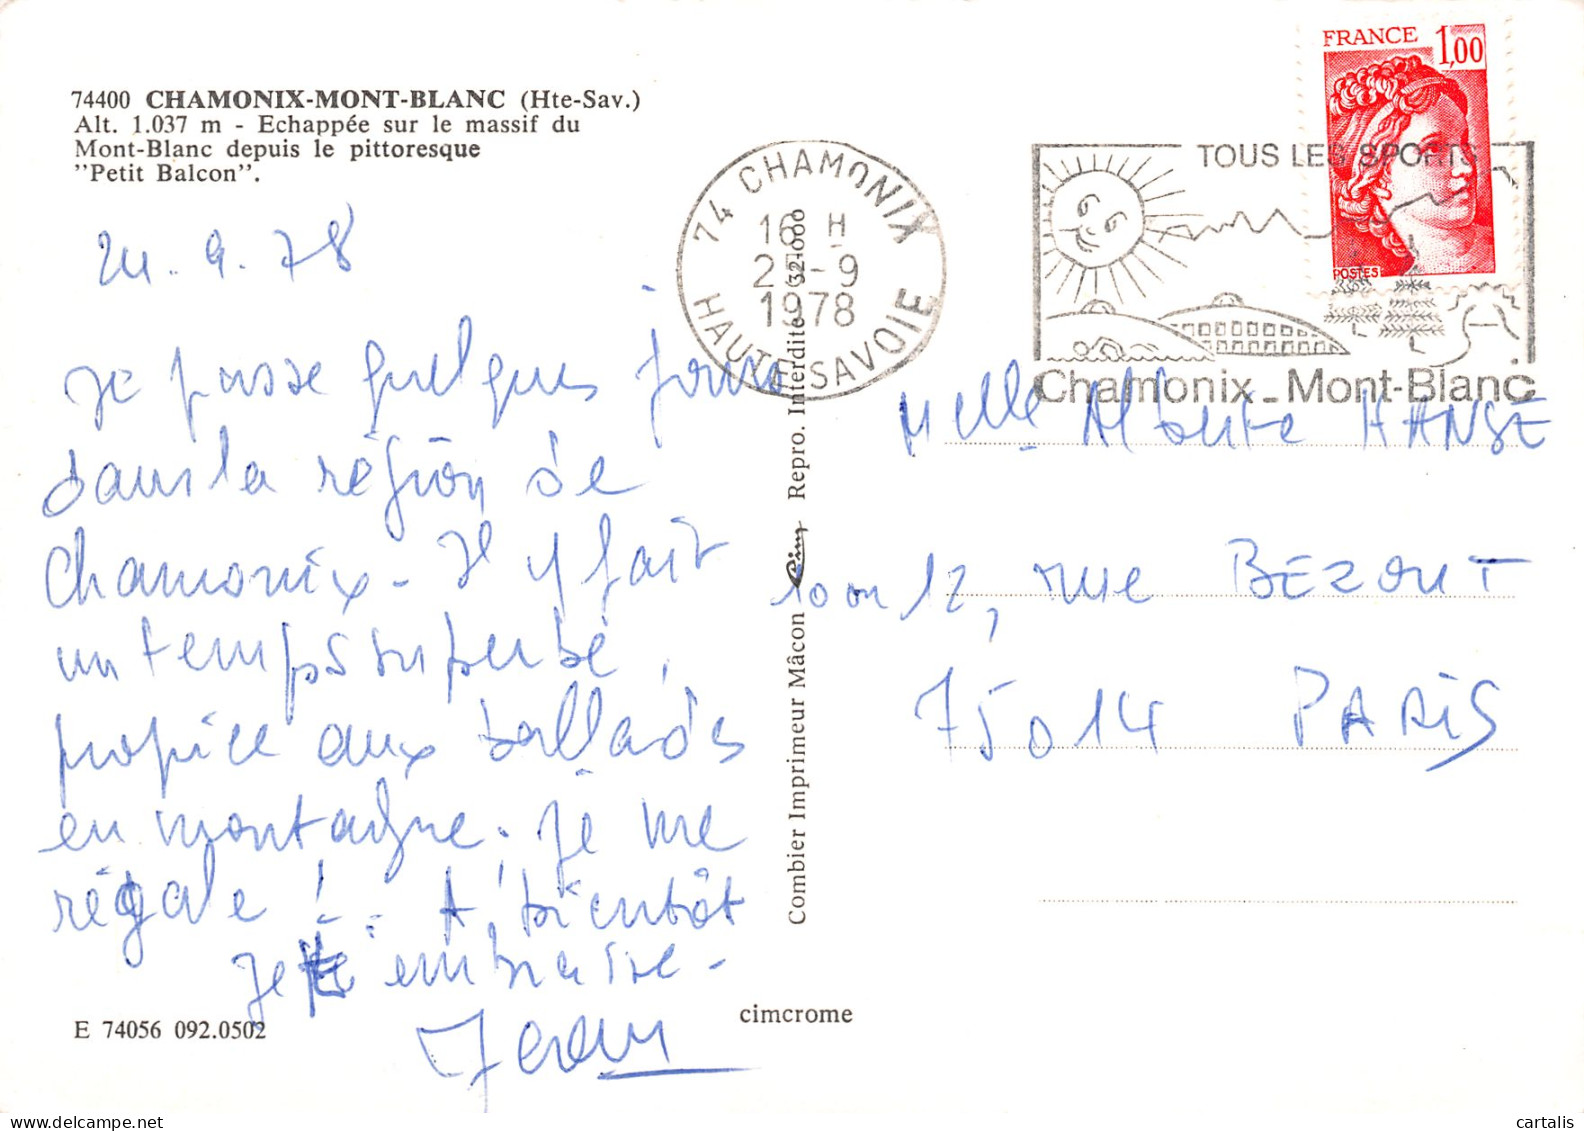 74400 CHAMONIX-MONT-BLANC (Hte-Sav.)
Alt. 1.037 m - Echappée sur le massif du
Mont-Blanc depuis le pittoresque
"Petit Balcon".
24. 9. 78
Je passe quelques jours
dans la région de
Chamonix - Il y fait
un temps superbe,
propice aux ballades
en montagne. Je me
régale ! A bientôt
Je t'embrasse -
E 74056 092.0502
cimcrome
Combier Imprimeur Mâcon Cim Repro. Interdite 32-1000
74 CHAMONIX
16 H
25-9
1978
HAUTE-SAVOIE
TOUS LES SPORTS
Chamonix - Mont-Blanc
FRANCE 1,00
POSTES
Melle HANSE
10 ou 12, rue BEZOUT
75014 PARIS
cartalis